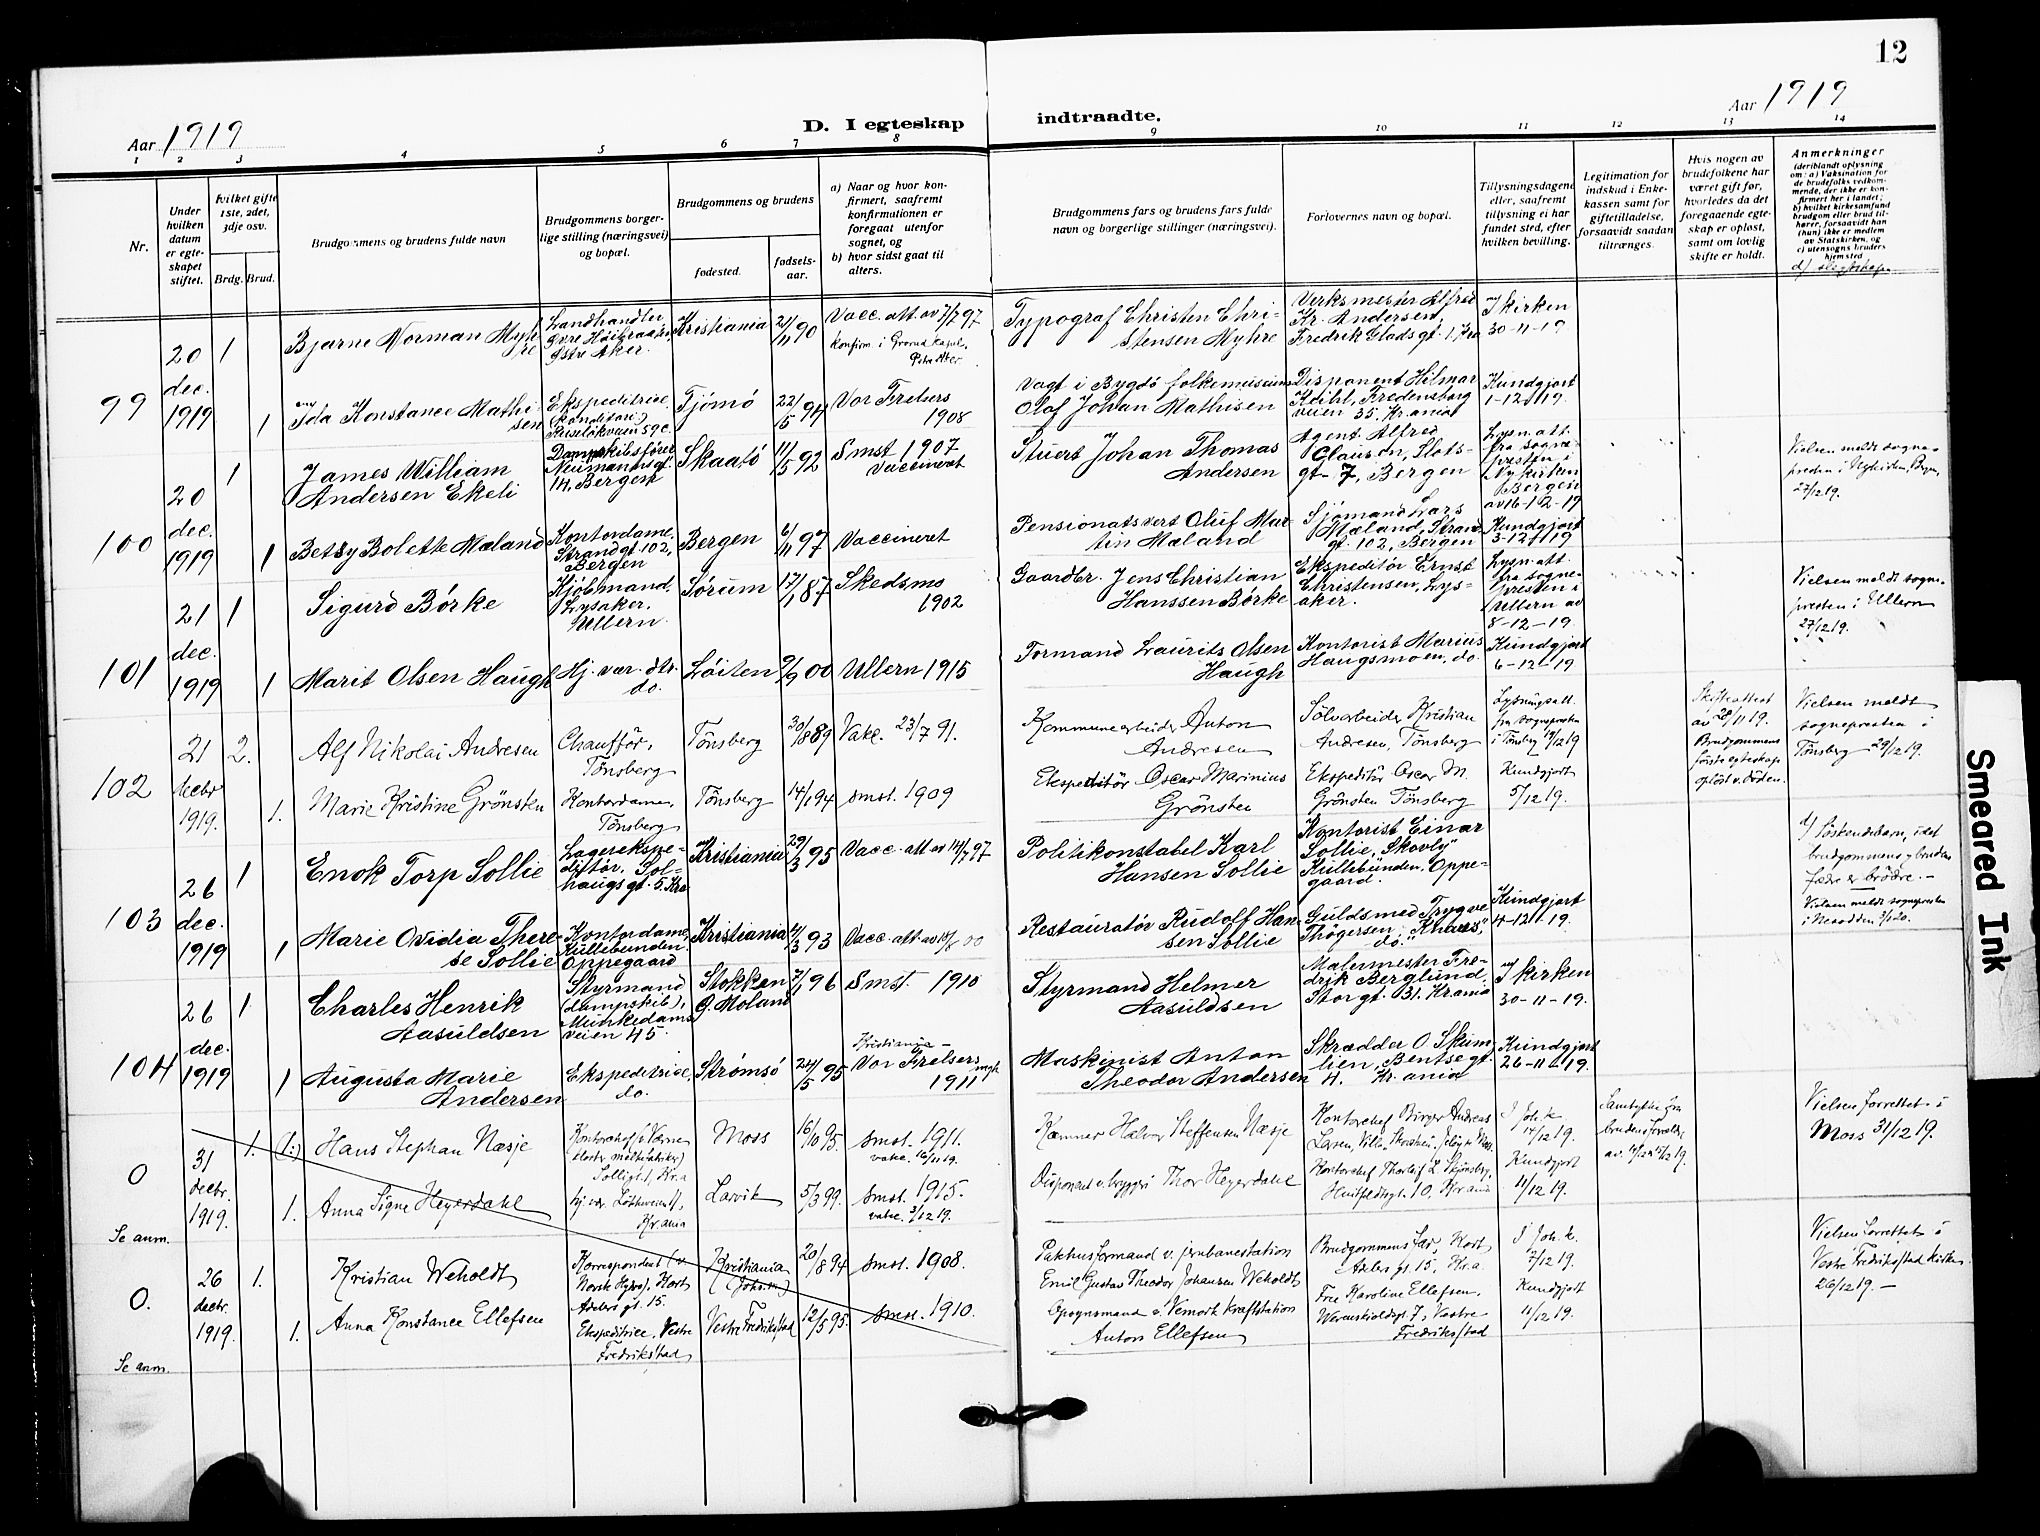 12
Aar 1919
D. I egteskap
indtraadte.
Aar 1919
1 2 3 4 5 6 7 8 9 10 11 12 13 14
Nr.
Under hvilken datum er egteskapet stiftet.
hvilket gifte 1ste, 2det, 3dje osv.
Brdg. Brud.
Brudgommens og brudens fulde navn
Brudgommens borgerlige stilling (næringsvei) og bopæl.
Brudgommens og brudens
fødested.
fødselsaar.
a) Naar og hvor konfirmert, saafremt konfirmationen er foregaat utenfor sognet, og
b) hvor sidst gaat til alters.
Brudgommens fars og brudens fars fulde navn og borgerlige stillinger (næringsvei).
Forlovernes navn og bopæl.
Tillysningsdagene eller, saafremt tillysning ei har fundet sted, efter hvilken bevilling.
Legitimation for indskud i Enkekassen samt for giftetilladelse, forsaavidt saadan tiltrænges.
Hvis nogen av brudefolkene har været gift før, hvorledes da det foregaaende egteskap er opløst, samt om lovlig skifte er holdt.
Anmerkninger
(deriblandt oplysning om: a) Vaksination for de brudefolks vedkommende, der ikke er konfirmert her i landet;
b) hvilket kirkesamfund brudgom eller brud tilhører, forsaavidt han (hun) ikke er medlem av Statskirken, og
c) utensogns bruders hjemsted
d) slegtskap.
99
20 dec. 1919
1 Bjarne Norman Myhre
Landhandler Øvre Høibraaten, Østre Aker.
Kristiania 21/11 90
Vacc. att. av 7/7 97
konfirm. i Grorud kapel, Østre Aker
Typograf Christen Christensen Myhre
Verksmester Alfred Kr. Andersen, Fredrik Glads gt. 1, Kra
I kirken 30-11-19.
1 Ida Konstance Mathisen
Ekspeditrice (konditori) Ruseløkveien 59c.
Tjømø 22/5 94
Vor Frelsers 1908
Vagt i Bygdø folkemuseum Olaf Johan Mathisen
Disponent Hilmar Keihl, Fredensborgveien 35, Kr.ania
Kundgjort 1-12-19.
100
20 dec. 1919
1 James William Andersen Ekeli
Dampskibsfører Neumannsgt. 14, Bergen
Skaatø 11/5 92
Smst 1907 Vaccineret
Stuert Johan Thomas Andersen
Agent Alfred Clausen, Slotsgt 7, Bergen
Lysn. att. fra sognepresten i Nykirken Bergen av 16-12-19
Vielsen meldt sognepresten i Nykirken, Bergen, 27/12 19.
1 Betsy Bolette Mæland
Kontordame, Strandgt 102, Bergen
Bergen 6/11 97
Vaccineret
Pensionatsvert Oluf Martin Mæland
Sjømand Lars Mæland, Strandgt. 102, Bergen
Kundgjort 3-12-19
101
21 dec. 1919
1 Sigurd Børke
Kjøbmand, Lysaker, Ullern.
Sørum 17/1 87
Skedsmo 1902
Gaardbr. Jens Christian Hanssen Børke
Ekspeditør Ernst Christensen, Lysaker.
Lysn. att. fra sognepresten i Ullern av 8-12-19.
Vielsen meldt sognepresten i Ullern 27/12 19.
1 Marit Olsen Haugh
Hj. vær. dtr. do.
Løiten 9/9 00
Ullern 1915
Formand Laurits Olsen Haugh
Kontorist Marius Haugsmoen, do.
Kundgjort 6-12-19
102
21 decbr 1919.
2. Alf Nikolai Andresen
Chauffør, Tønsberg
Tønsberg 30/8 89
Vakc. 23/7 91.
Kommunearbeider Anton Andresen
Sølvarbeider Kristian Andresen, Tønsberg
Lysningsatt. fra sognepresten i Tønsberg 19/12 19
Skifteattest av 28/11 19. Brudgommens første egteskap opløst v. døden.
Vielsen meldt sognepresten i Tønsberg 29/12 19.
1. Marie Kristine Grönsten
Kontordame, Tønsberg
Tønsberg 14/1 94
smst. 1909
Ekspeditör Oscar Marinius Grönsten
Ekspeditör Oscar M. Grönsten Tönsberg
Kundgjort 5/12 19.
103
26 dec. 1919
1 Enok Torp Sollie
Lagerekspeditør, Solhaugsgt. 5, Kra
Kristiania 29/3 95
Vacc. att. av 14/7 97
Politikonstabel Karl Hansen Sollie
Kontorist Einar Sollie, "Skovly" Kullebunden, Oppegaard
d) Söskendebarn, idet brudgommens og brudens fædre er brödre. –
Vielsen meldt sognepresten i Nesodden 3/1 20.
1 Marie Ovidia Therese Sollie
Kontordame, Kullebunden Oppegaard
Kristiania 4/3 93
Vacc. att. av 18/8 00
Restauratør Rudolf Hansen Sollie
Guldsmed Trygve Thøgersen, do.
Kundgjort 4-12-19.
104
26 dec. 1919
1 Charles Henrik Aasuldsen
Styrmand (dampskib), Munkedamsveien 45.
Stokken Ø. Moland 7/1 96
Smst. 1910
Styrmand Helmer Aasuldsen
Malermester Fredrik Berglund, Storgt. 31. Kr.ania
I kirken 30-11-19.
1 Augusta Marie Andersen
Ekspeditrice, do.
Strømsø 24/5 95
Kristiania – Vor Frelsers mgh 1911
Maskinist Anton Theodor Andersen
Skrædder O. Skumlien, Bentsegt 4. Kr.ania
Kundgjort 26-11-19.
0
31 decbr. 1919.
Se anm.
1. (1:) Hans Stephan Næsje
Kontorchef i Værne kloster
Solligt. 1, Kr.a
Moss 16/10 95.
smst. 1911. vakc. 16/11 19.
Kæmner Halvor Steffensen Næsje
Kontorchef Birger Andreas Larsen
I Joh. k. 14/12 19.
Samtykke fra brudens forældre
Vielsen forrettet i Moss 31/12 19.
1. Anna Signe Heyerdahl
hj. vær. Kr.ania
Larvik 5/3 99.
smst. 1915. vakc. 3/12 19.
Disponent v. bryggeri Thor Heyerdahl
Kontorchef Thorleif L. Skjönsberg, Huitfeldtsgt. 10, Kr.ania
Kundgjort 11/12 19.
0.
26 decbr. 1919.
Se anm.
1. Kristian Weholdt
Korrespondent (v. Norsk Hydro), Hort. Adelers gt. 15.
Kristiania (Johs. m.) 20/8 94
smst. 1908.
Pakhusformand v. jernbanestation Emil Gustav Theodor Johansen Weholdt
Brudgommens far, Adelers gt. 15, Kr.a.
I Joh. k. 7/12 19.
Vielsen forrettet i Vestre Fredrikstad kirke 26/12 19. –
1. Anna Konstance Ellefsen
Ekspeditrice, Vestre Fredrikstad
Vestre Fredrikstad 12/5 95.
smst. 1910.
Opsynsmand v. Vemork kraftstation Anton Ellefsen
Fru Karoline Ellefsen, Werenskioldsgt. 7, Vestre Fredrikstad
Kundgjort 11/12 19.
Smeared Ink